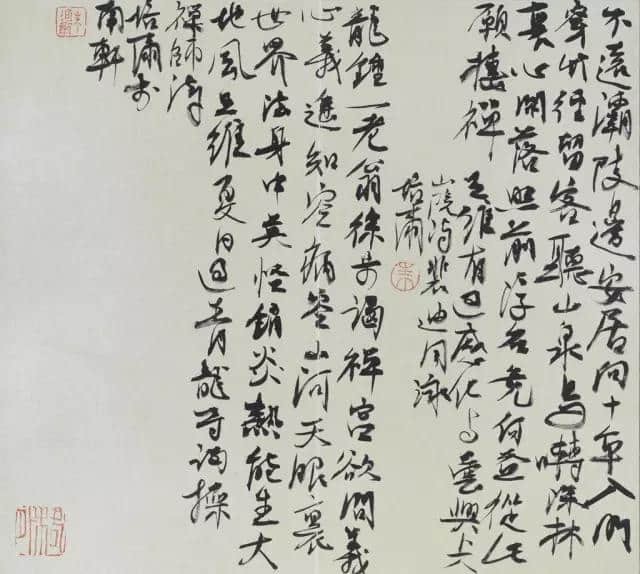 不遠灞陵邊安居向十年入門
穿竹徑留客聽山泉鳥囀深林
裏心閑落照前浮名竟何益從此
願棲禪
王維有過感化寺曇興上人
山院詩裴迪同詠
龍鍾一老翁徐步謁禪宮欲問義
心義遙知空病空山河天眼裏
世界法身中莫怪銷炎熱能生大
地風王維夏日過青龍寺謁操
禪師詩
南軒